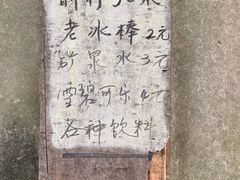 老冰棒2元
矿泉水3元
雪碧可乐4元
各种饮料